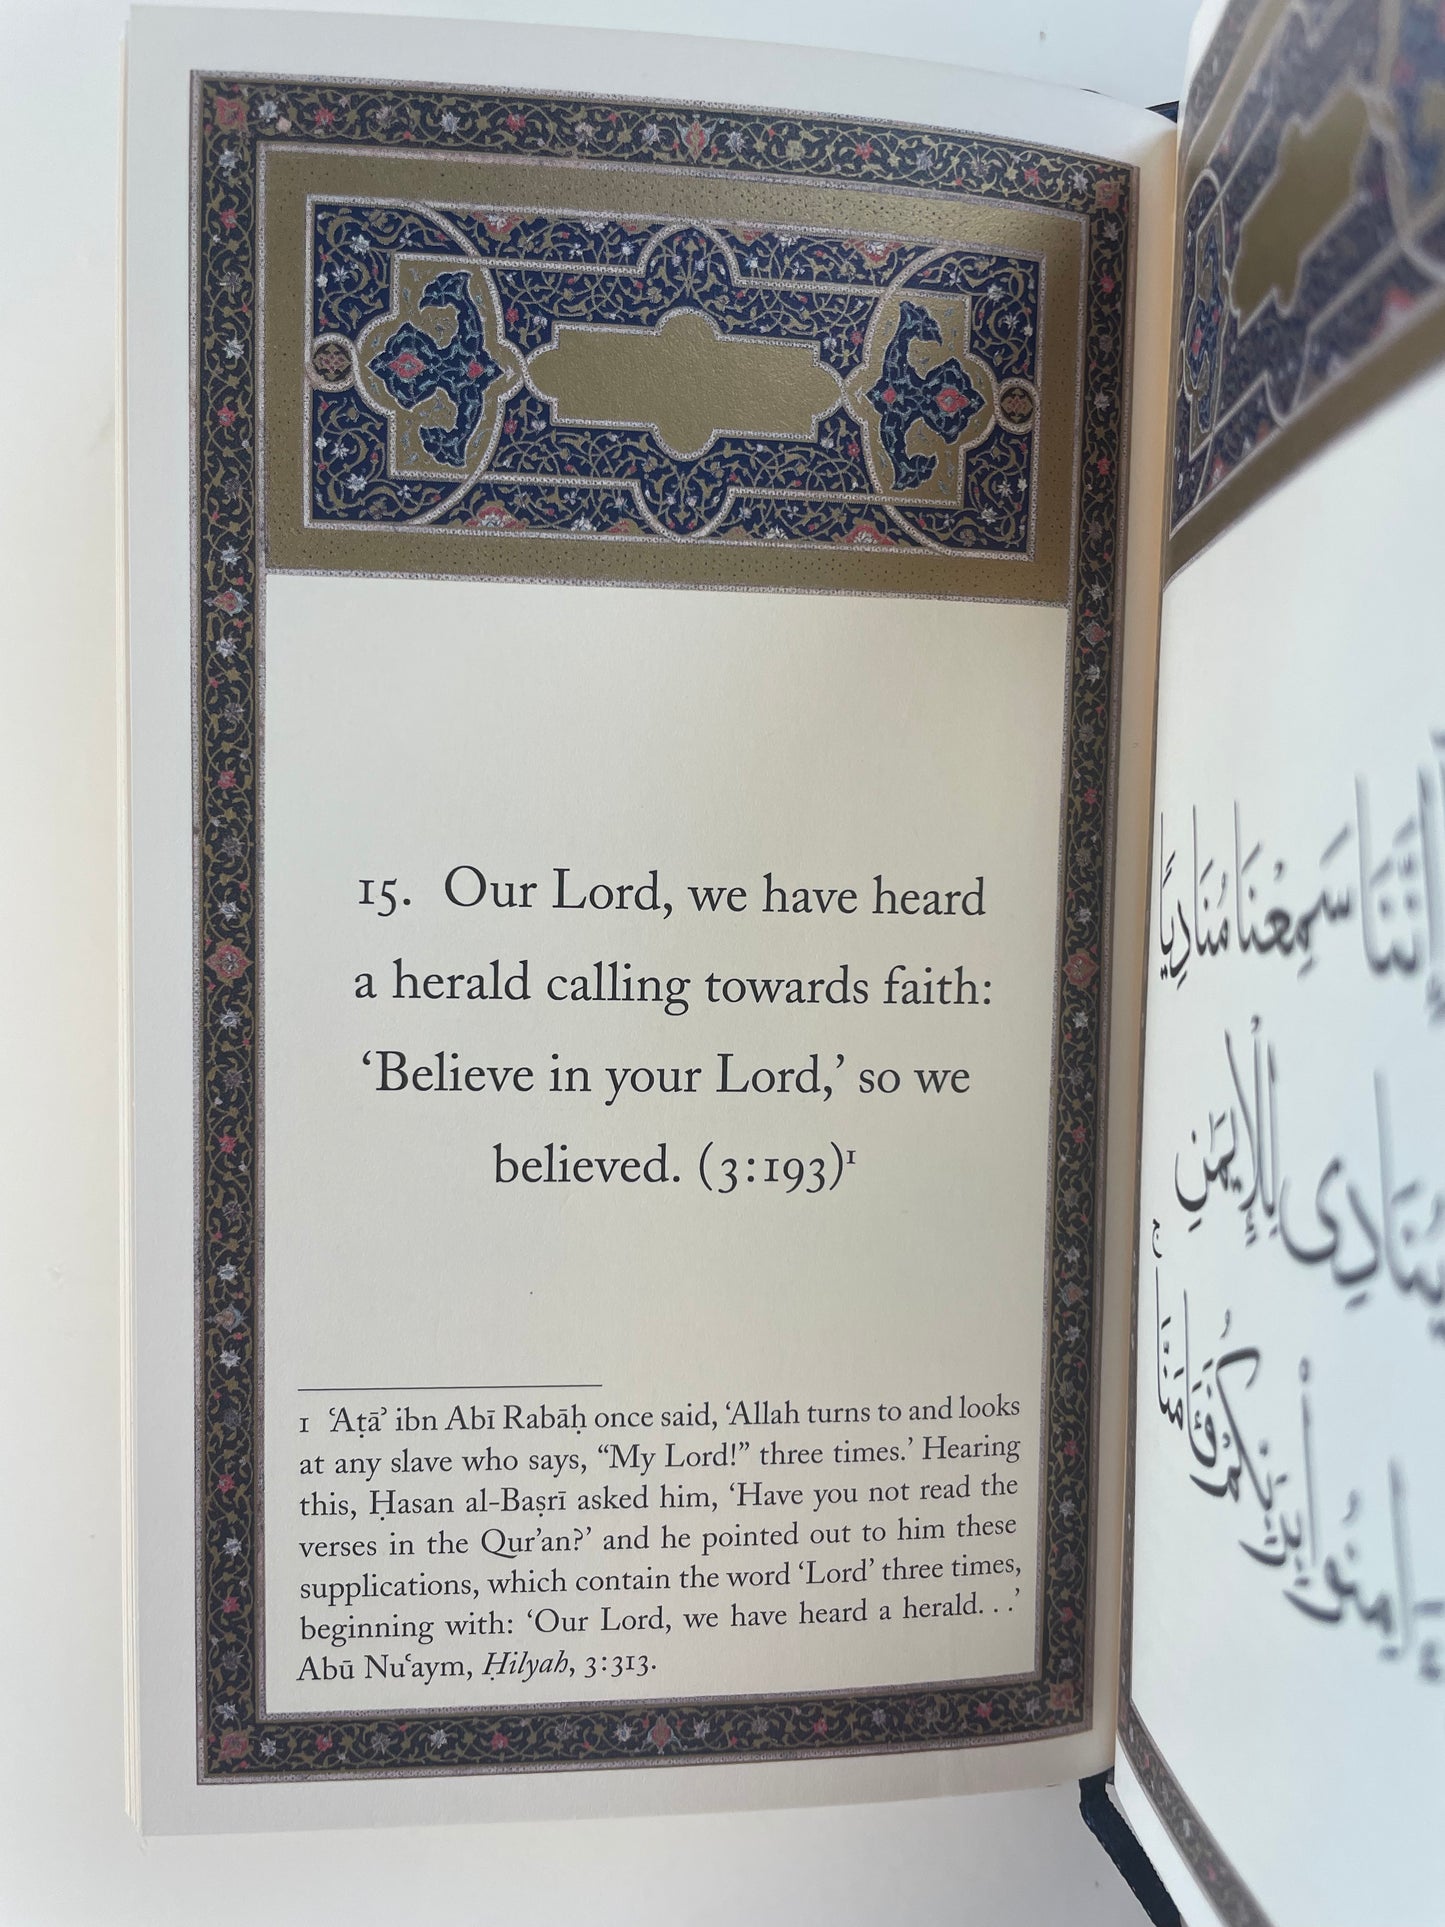 15. Our Lord, we have heard
a herald calling towards faith:
‘Believe in your Lord,’ so we
believed. (3:193)¹
1 ʿAṭāʾ ibn Abī Rabāḥ once said, ‘Allah turns to and looks
at any slave who says, “My Lord!” three times.’ Hearing
this, Ḥasan al-Baṣrī asked him, ‘Have you not read the
verses in the Qurʾan?’ and he pointed out to him these
supplications, which contain the word ‘Lord’ three times,
beginning with: ‘Our Lord, we have heard a herald. . .’
Abū Nuʿaym, Ḥilyah, 3:313.
إِنَّنَا سَمِعْنَا مُنَادِيًا
يُنَادِى لِلْإِيمَٰنِ
ءَامِنُوا۟ بِرَبِّكُمْ فَـَٔامَنَّا ۚ